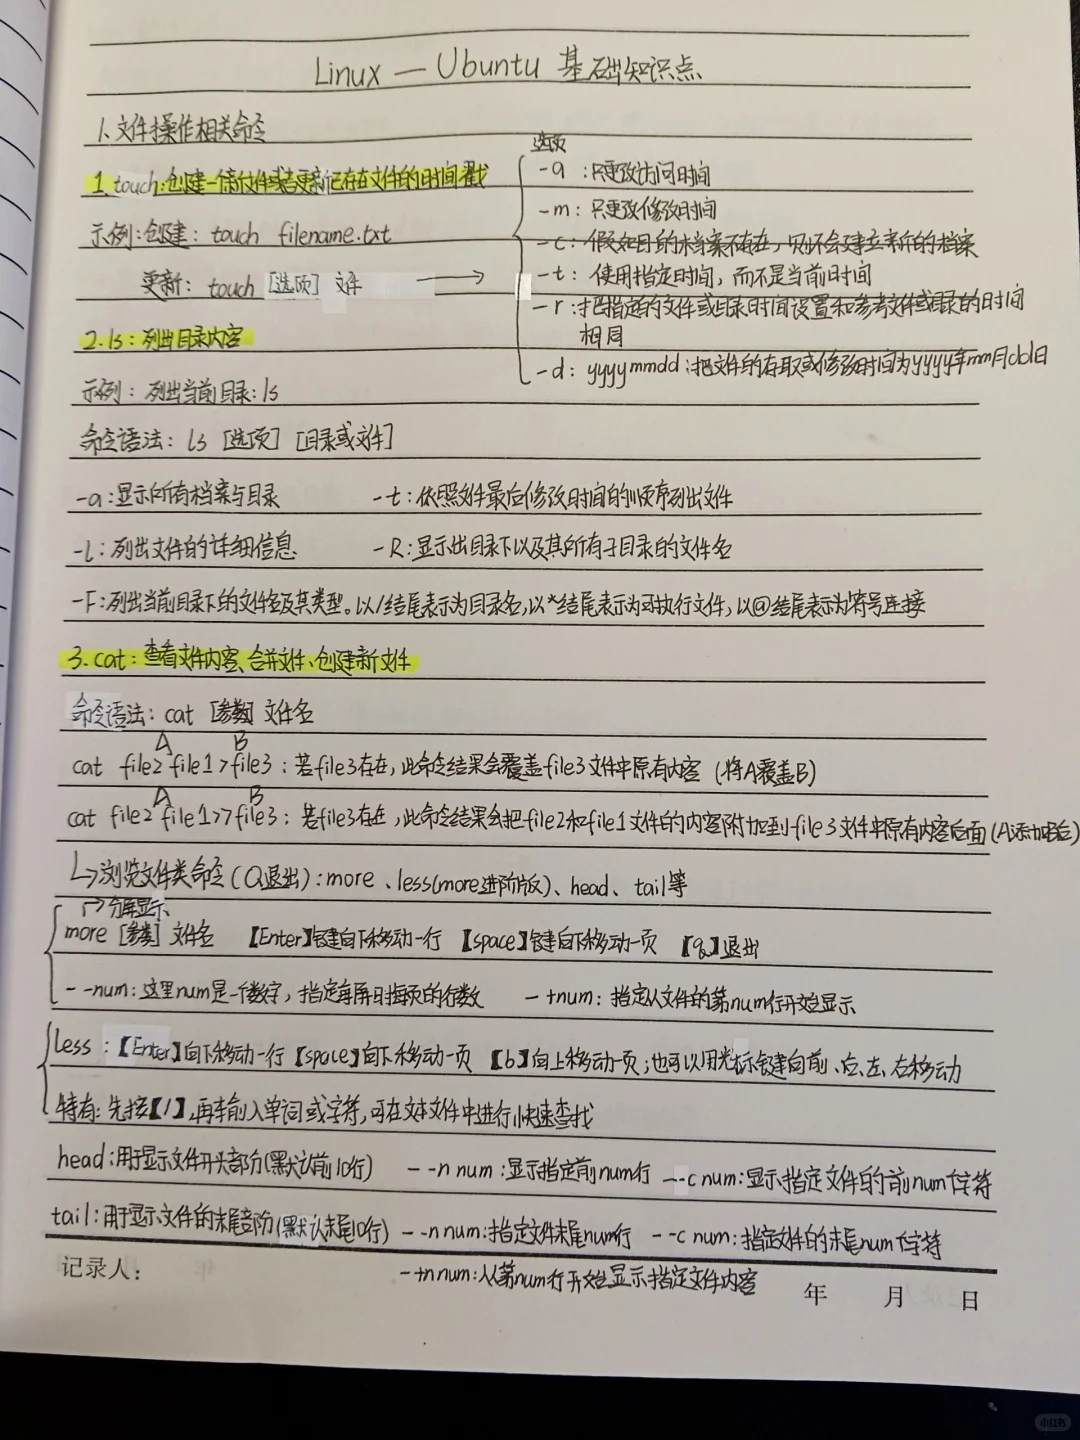 Linux — Ubuntu 基础知识点
1.文件操作相关命令
1. touch:创建一个新文件或者更新已存在文件的时间戳
示例:创建: touch filename.txt
更新: touch [选项] 文件 →
选项
-a :只更改访问时间
-m: 只更改修改时间
-c: 假如目的档案不存在, 则不会建立新的档案
-t: 使用指定时间, 而不是当前时间
-r:把指定的文件或目录时间设置和参考文件或目录的时间
相同
-d: yyyymmdd:把文件的存取或修改时间为yyyy年mm月dd日
2.ls:列出目录内容
示例: 列出当前目录:ls
命令语法: ls [选项] [目录或文件]
-a:显示所有档案与目录 -t:依照文件最后修改时间的顺序列出文件
-l:列出文件的详细信息 -R:显示出目录下以及其所有子目录的文件名
-F:列出当前目录下的文件名及其类型。以/结尾表示为目录名,以*结尾表示为可执行文件,以@结尾表示为符号连接
3.cat:查看文件内容、合并文件、创建新文件
命令语法: cat [参数] 文件名
A B
cat file2 file1>file3:若file3存在,此命令结果会覆盖file3文件中原有内容 (将A覆盖B)
A B
cat file2 file1>>file3:若file3存在,此命令结果会把file2和file1文件的内容附加到file3文件中原有内容后面(A添加B后)
↳浏览文件类命令(Q退出):more、less(more进阶版)、head、tail等
↱分屏显示
more [参数] 文件名 【Enter】键向下移动一行 【space】键向下移动一页 【q】退出
- -num:这里num是一个数字, 指定每屏的行数 - +num: 指定从文件的第num行开始显示
less :【Enter】向下移动一行【space】向下移动一页 【b】向上移动一页;也可以用光标键向前、后、左、右移动
特有:先按【/】,再输入单词或字符,可在文本文件中进行快速查找
head:用于显示文件开头部分(默认前10行) - -n num:显示指定前num行 - -c num:显示指定文件的前num个字符
tail:用于显示文件的末尾部分(默认末尾10行) - -n num:指定文件末尾num行 - -c num:指定文件的末尾num个字符
- +n num:从第num行开始显示指定文件内容
记录人: 年 月 日
小红书